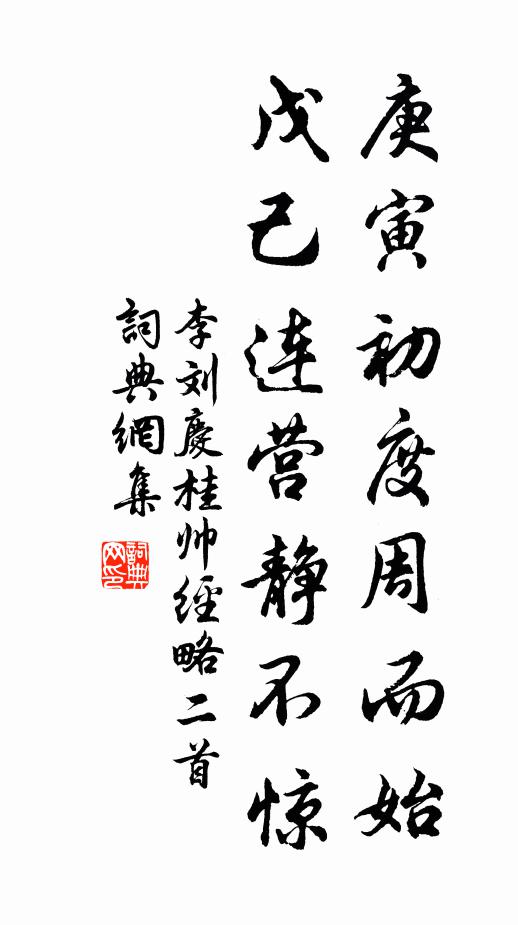 庚寅初度周而始
戊己连营静不惊
李刘慶桂帅經略二首
詞典網集
詞典网印